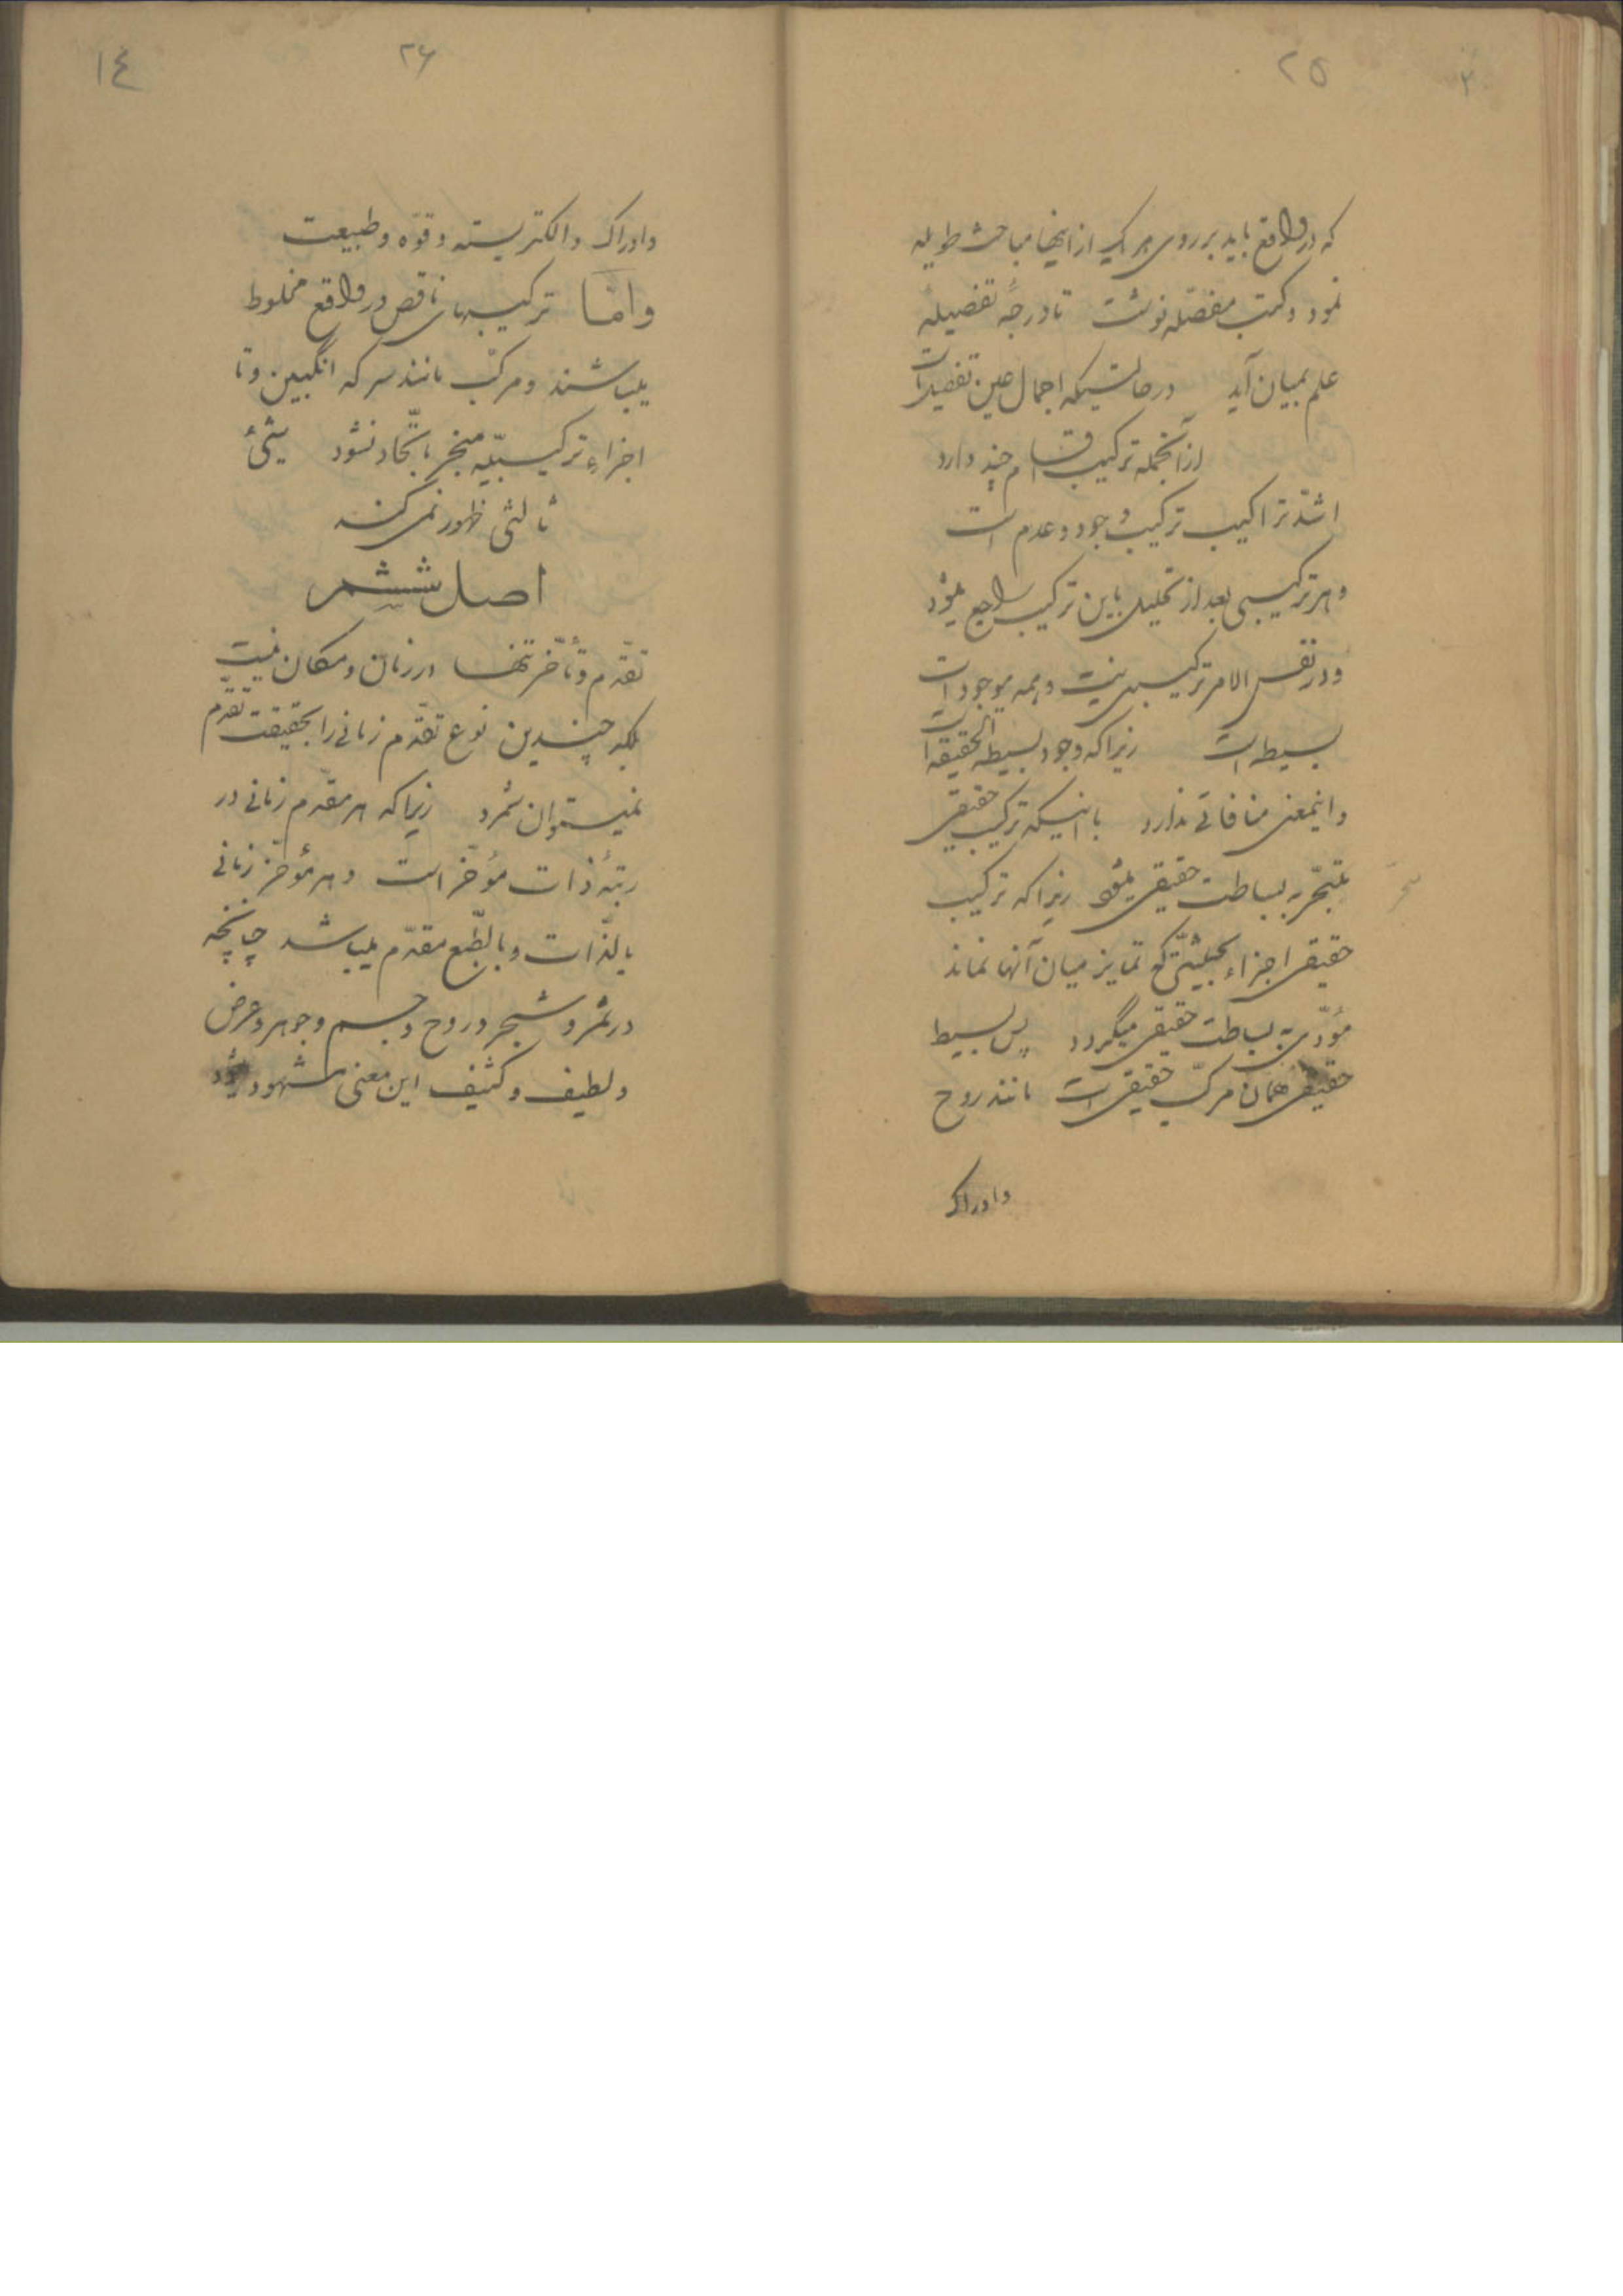 ۲۵
که در واقع باید بر روی هر یک از اینها مباحث طویله
نمود و کتب مفصّله نوشت تا درجهٔ تفصیلیه
علم بمیان آید در حالتیکه اجمال عین تفصیل است
از آنجمله ترکیب اقسام چند دارد
اشدّ تراکیب ترکیب وجود و عدم است
و هر ترکیبی بعد از تحلیل باین ترکیب راجع میشود
و در نفس الامر ترکیبی نیست و همه موجودات
بسیط است زیرا که وجود بسیط الحقیقه است
و اینمعنی منافاتی ندارد با اینکه ترکیب حقیقی
به بساطت حقیقی میشود زیرا که ترکیب
حقیقی اجزاء بحیثیّتی که تمایز میان آنها نماند
مؤدّی به بساطت حقیقی میگردد پس بسیط
حقیقی همان مرکّب حقیقی است مانند روح
وادراک
۲۶
۱٤
وادراک والکتریسته وقوّه وطبیعت
وامّا ترکیبهای ناقص در واقع مخلوط
میباشند و مرکّب مانند سرکه انگبین و تا
اجزاء ترکیبیّه منجر باتّحاد نشود شیئ
ثالثی ظهور نمی‌کند
اصل ششم
تقدّم وتأخّر تنها در زمان ومکان نیست
بلکه چندین نوع تقدّم زمانی را بحقیقت تقدّم
نمیتوان شمرد زیرا که هر مقدّم زمانی در
رتبهٔ ذات مؤخّر است و هر مؤخّر زمانی
بالذّات و بالطّبع مقدّم میباشد چنانچه
در ثمر و شجر و روح و جسم و جوهر و عرض
و لطیف و کثیف این معنی مشهود میشود